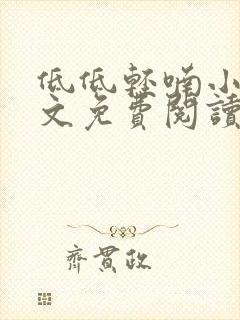 低低輕喃小
文免費閱讀
齊貫政